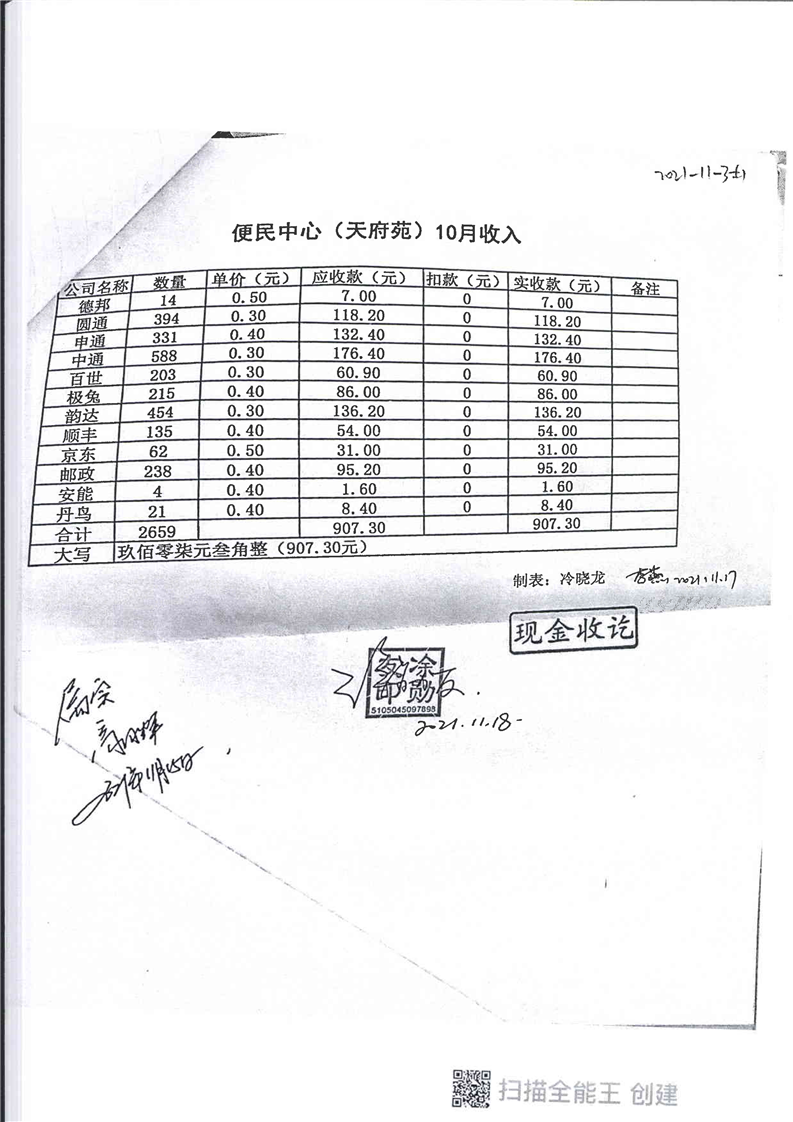 2021-11-3
便民中心（天府苑）10月收入
公司名称 数量 单价（元） 应收款（元） 扣款（元） 实收款（元） 备注
德邦 14 0.50 7.00 0 7.00
圆通 394 0.30 118.20 0 118.20
申通 331 0.40 132.40 0 132.40
中通 588 0.30 176.40 0 176.40
百世 203 0.30 60.90 0 60.90
极兔 215 0.40 86.00 0 86.00
韵达 454 0.30 136.20 0 136.20
顺丰 135 0.40 54.00 0 54.00
京东 62 0.50 31.00 0 31.00
邮政 238 0.40 95.20 0 95.20
安能 4 0.40 1.60 0 1.60
丹鸟 21 0.40 8.40 0 8.40
合计 2659 907.30 907.30
大写 玖佰零柒元叁角整（907.30元）
制表：冷晓龙 2021.11.17
现金收讫
5105045097898
2021.11.18
扫描全能王 创建